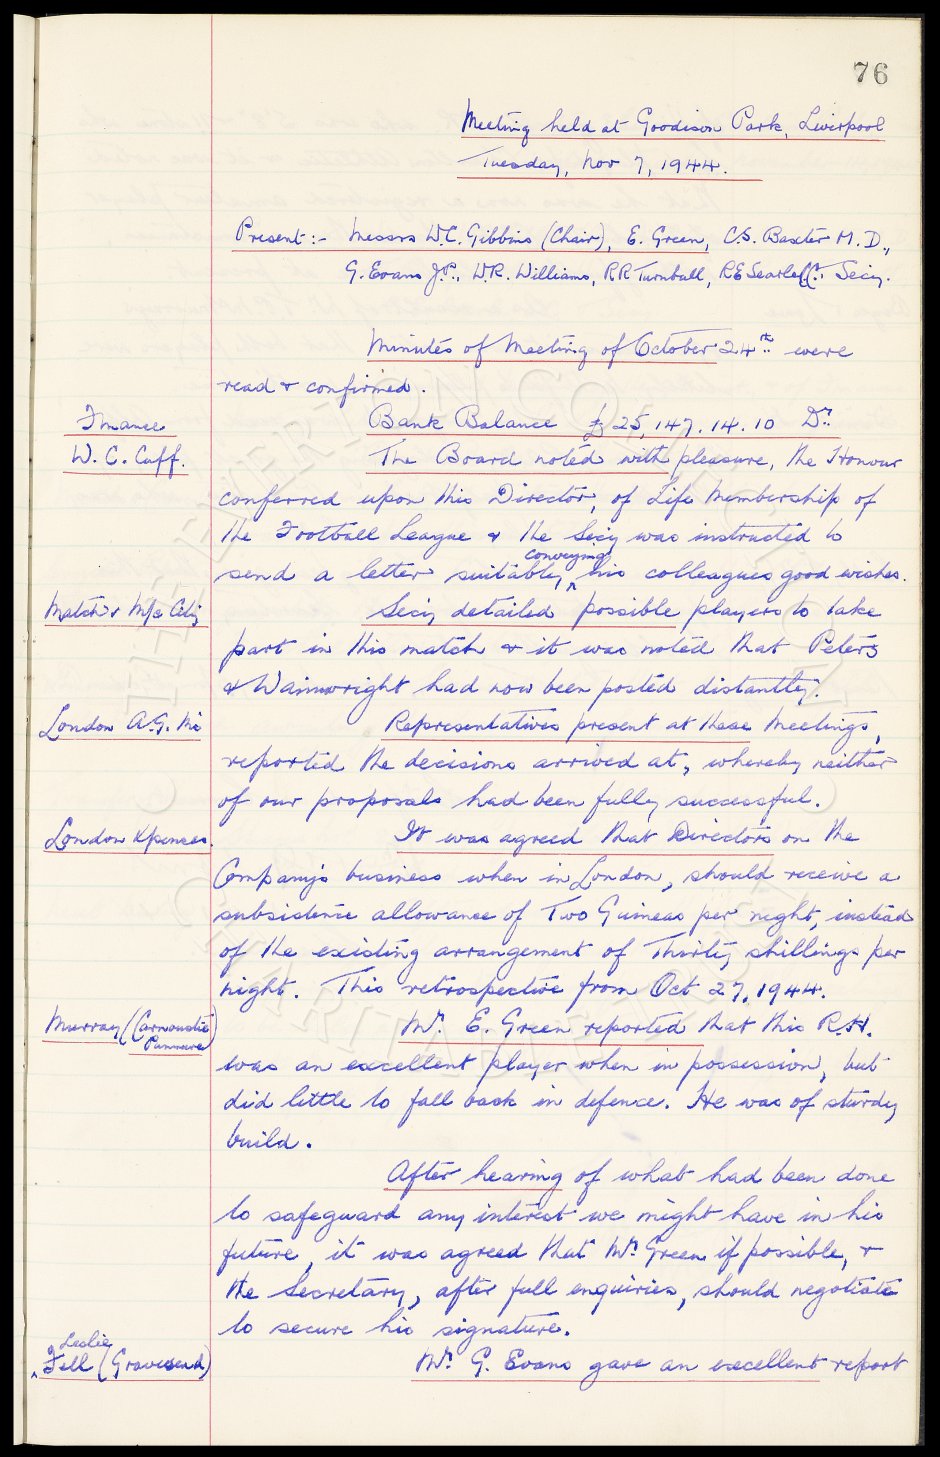 76
Meeting held at Goodison Park, Liverpool
Tuesday, Nov 7, 1944.
Present:- Messrs W.C. Gibbins (Chair), E. Green, C.S. Baxter M.D.,
G. Evans J.P., W.R. Williams, R R Turnbull, R E Searle, Secy.
Minutes of Meeting of October 24th were
read & confirmed.
Finance Bank Balance £25,147.14.10 Dr
W. C. Cuff. The Board noted with pleasure, the Honour
conferred upon this Director, of Life Membership of
the Football League & the Secy was instructed to
send a letter suitable, conveying his colleagues good wishes.
Match v M/c City Secy detailed possible players to take
part in this match & it was noted that Peters
& Wainwright had now been posted distantly.
London A.G. Representatives present at these Meetings,
reported the decisions arrived at, whereby neither
of our proposals had been fully successful.
London Xpenses. It was agreed that Directors on the
Company's business when in London, should receive a
subsistence allowance of Two Guineas per night, instead
of the existing arrangement of Thirty shillings per
night. This retrospective from Oct 27, 1944.
Murray (Carnoustie Panmure) Mr. E. Green reported that this R.H.
was an excellent player when in possession, but
did little to fall back in defence. He was of sturdy
build.
After hearing of what had been done
to safeguard any interest we might have in his
future, it was agreed that Mr Green if possible, &
the Secretary, after full enquiries, should negotiate
to secure his signature.
Leslie Fell (Gravesend) Mr. G. Evans gave an excellent report
THE EVERTON COLLECTION
CHARITABLE TRUST